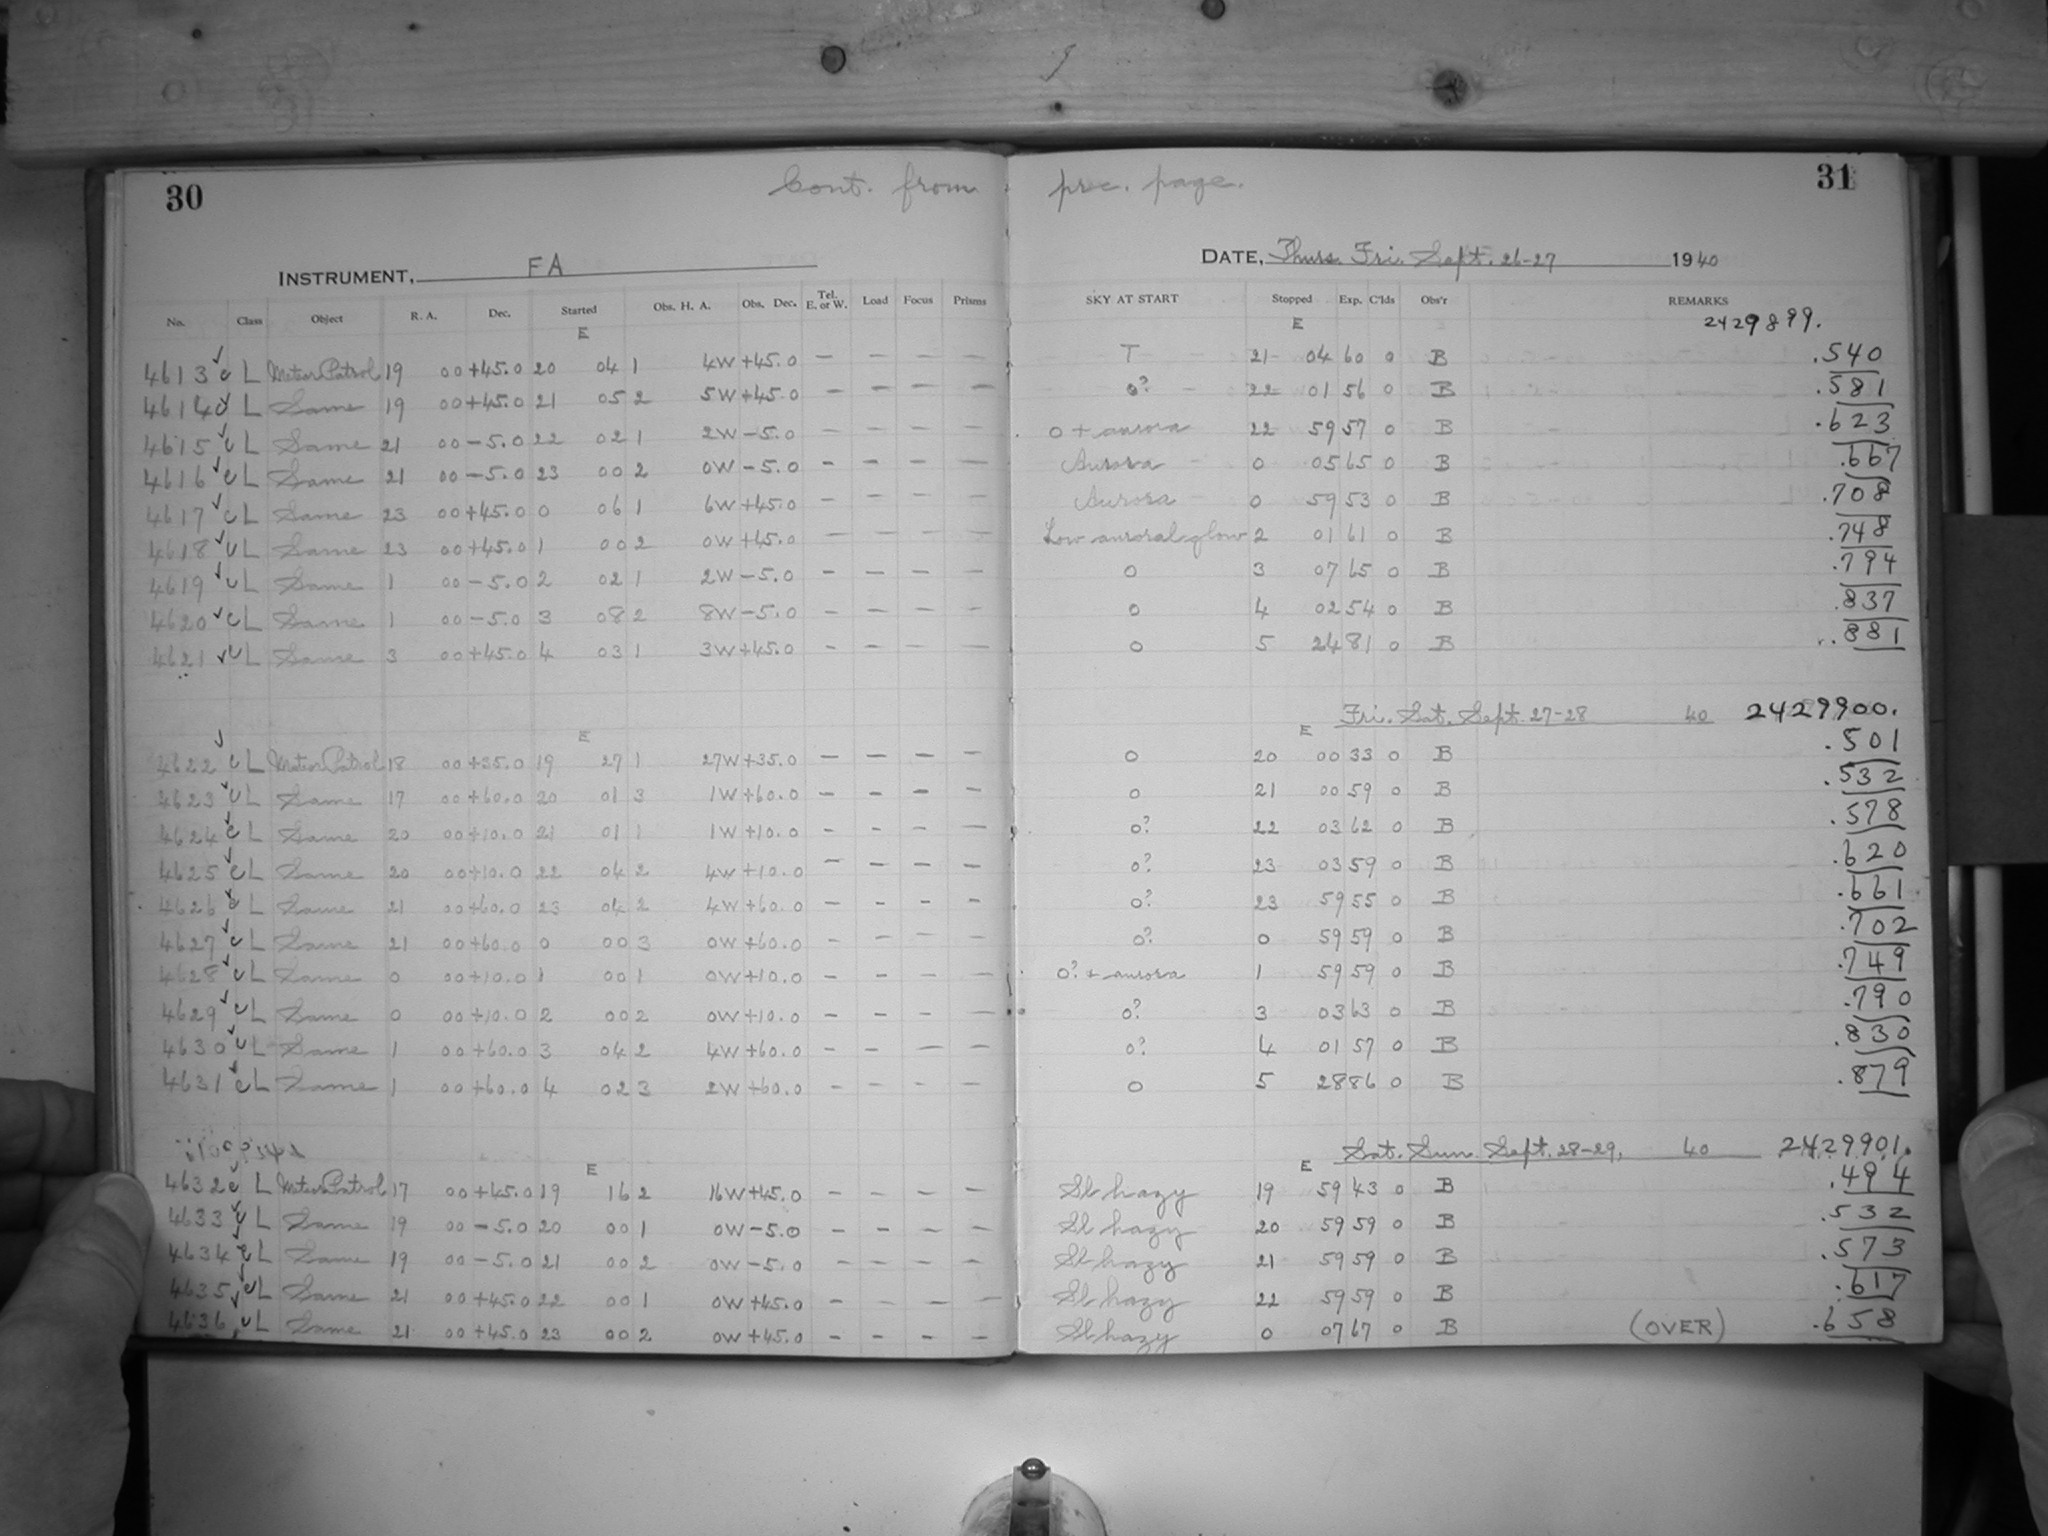 30
Cont. from prec. page.
31
INSTRUMENT, FA
DATE, Thurs. Fri. Sept. 26-27 1940
No. Class Object R. A. Dec. Started Obs. H. A. Obs. Dec. Tel. E. or W. Load Focus Prisms SKY AT START Stopped Exp. C'lds Obs'r REMARKS
E E 2429899.
4613 c L Meteor Patrol 19 00 +45.0 20 04 1 4W +45.0 — — — — T 21 04 60 0 B .540
4614 c L Same 19 00 +45.0 21 05 2 5W +45.0 — — — — 0? 22 01 56 0 B .581
4615 c L Same 21 00 -5.0 22 02 1 2W -5.0 — — — — 0 + aurora 22 59 57 0 B .623
4616 c L Same 21 00 -5.0 23 00 2 0W -5.0 — — — — Aurora 0 05 65 0 B .667
4617 c L Same 23 00 +45.0 0 06 1 6W +45.0 — — — — Aurora 0 59 53 0 B .708
4618 c L Same 23 00 +45.0 1 00 2 0W +45.0 — — — — Low auroral glow 2 01 61 0 B .748
4619 c L Same 1 00 -5.0 2 02 1 2W -5.0 — — — — 0 3 07 65 0 B .794
4620 c L Same 1 00 -5.0 3 08 2 8W -5.0 — — — — 0 4 02 54 0 B .837
4621 c L Same 3 00 +45.0 4 03 1 3W +45.0 — — — — 0 5 24 81 0 B .881
Fri. Sat. Sept. 27-28 40 2429900.
E E
4622 c L Meteor Patrol 18 00 +35.0 19 27 1 27W +35.0 — — — — 0 20 00 33 0 B .501
4623 c L Same 17 00 +60.0 20 01 3 1W +60.0 — — — — 0 21 00 59 0 B .532
4624 c L Same 20 00 +10.0 21 01 1 1W +10.0 — — — — 0? 22 03 62 0 B .578
4625 c L Same 20 00 +10.0 22 04 2 4W +10.0 — — — — 0? 23 03 59 0 B .620
4626 c L Same 21 00 +60.0 23 04 2 4W +60.0 — — — — 0? 23 59 55 0 B .661
4627 c L Same 21 00 +60.0 0 00 3 0W +60.0 — — — — 0? 0 59 59 0 B .702
4628 c L Same 0 00 +10.0 1 00 1 0W +10.0 — — — — 0? + aurora 1 59 59 0 B .749
4629 c L Same 0 00 +10.0 2 00 2 0W +10.0 — — — — 0? 3 03 63 0 B .790
4630 c L Same 1 00 +60.0 3 04 2 4W +60.0 — — — — 0? 4 01 57 0 B .830
4631 c L Same 1 00 +60.0 4 02 3 2W +60.0 — — — — 0 5 28 86 0 B .879
Sat. Sun. Sept. 28-29, 40 2429901.
E E
4632 c L Meteor Patrol 17 00 +45.0 19 16 2 16W +45.0 — — — — Sl hazy 19 59 43 0 B .494
4633 c L Same 19 00 -5.0 20 00 1 0W -5.0 — — — — Sl hazy 20 59 59 0 B .532
4634 c L Same 19 00 -5.0 21 00 2 0W -5.0 — — — — Sl hazy 21 59 59 0 B .573
4635 c L Same 21 00 +45.0 22 00 1 0W +45.0 — — — — Sl hazy 22 59 59 0 B .617
4636 c L Same 21 00 +45.0 23 00 2 0W +45.0 — — — — Sl hazy 0 07 67 0 B (OVER) .658